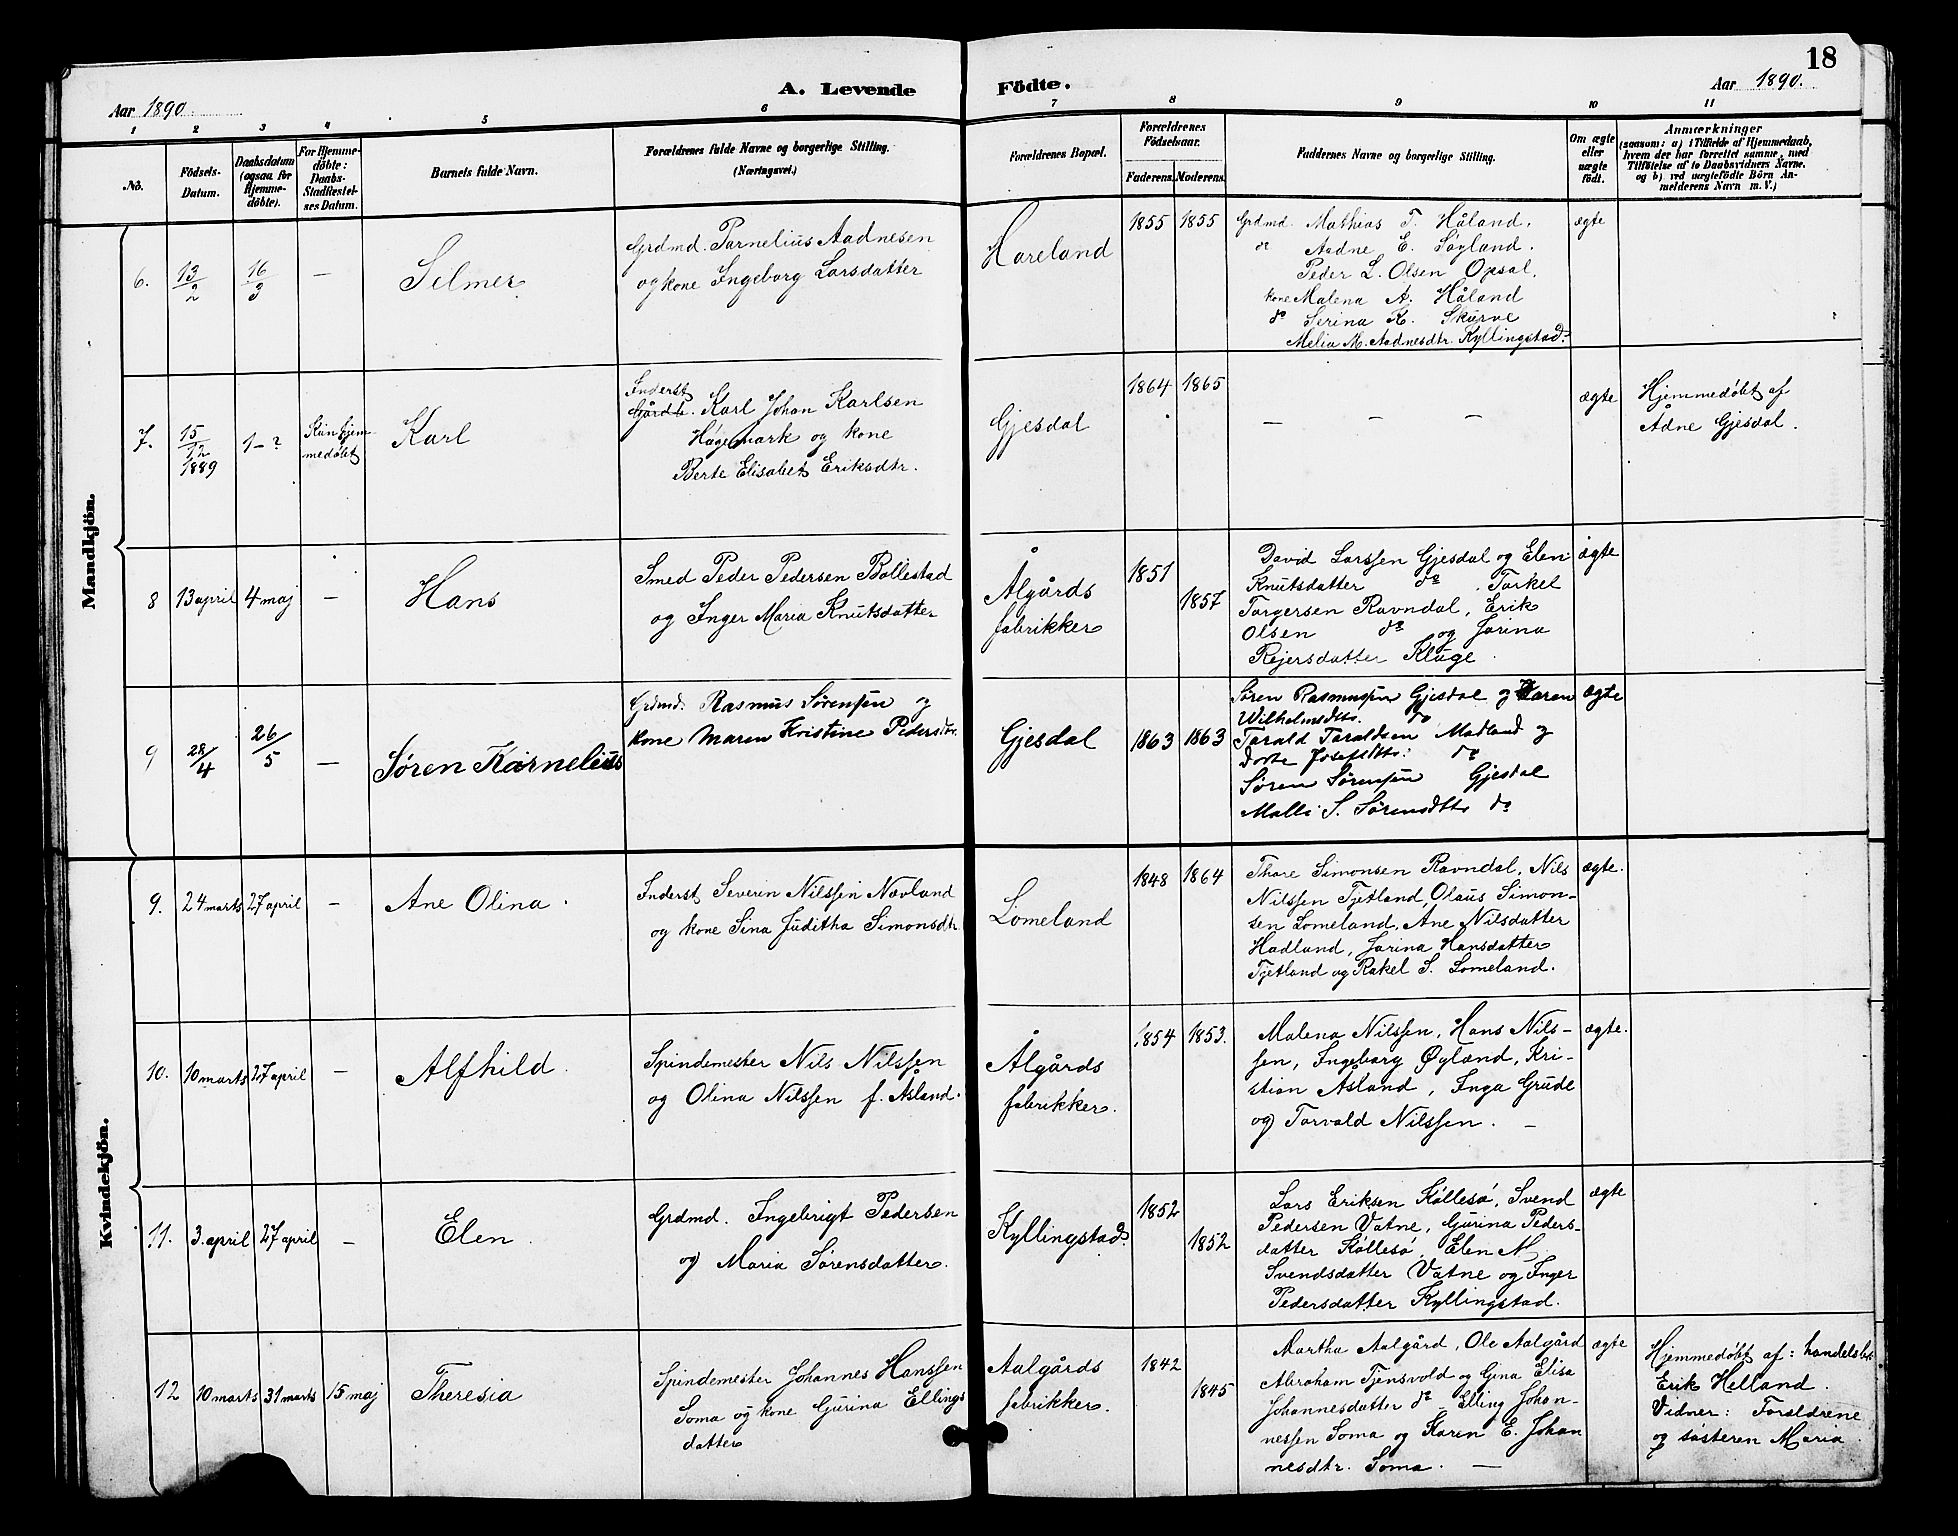 18
A. Levende Födte.
Aar 1890.
Aar 1890.
1 2 3 4 5 6 7 8 9 10 11
No.
Födsels-
Datum.
Daabsdatum
(ogsaa for
Hjemme-
döbte).
For Hjemme-
döbte:
Daabs-
Stadfæstel-
ses Datum.
Barnets fulde Navn.
Forældrenes fulde Navne og borgerlige Stilling.
(Næringsvei.)
Forældrenes Bopæl.
Forældrenes
Födselsaar.
Faderens. Moderens.
Faddernes Navne og borgerlige Stilling.
Om ægte
eller
uægte
födt.
Anmærkninger
(saasom: a) i Tilfælde af Hjemmedaab,
hvem der har forrettet samme, med
Tilföielse af to Daabsvidners Navne.
og b) ved uægtefödte Börn An-
melderens Navn m. V.)
Mandkjön.
6.
13/2
16/3
—
Selmer
Grdmd. Parnelius Aadnesen
og kone Ingeborg Larsdatter
Hareland
1855 1855
Grdmd. Mathias T. Håland.
do Aadne E. Søyland.
Peder L. Olsen Opsal.
kone Malena A. Håland
do Serina K. Skurve
Melia M. Aadnesdtr. Kyllingstad.
ægte
7.
15/12
1889
1-?
Kun hjem
medøbt
Karl
Inderst
Gårdb. Karl Johan Karlsen
Høgemark og kone
Berte Elisabet Eriksdtr.
Gjesdal
1864 1865
— — —
ægte
Hjemmedøbt af
Ådne Gjesdal.
8
13 april
4 maj
—
Hans
Smed Peder Pedersen Bollestad
og Inger Maria Knutsdatter
Ålgårds
fabrikker
1851
1857
David Larssen Gjesdal og Elen
Knutsdatter do. Torkel
Torgersen Ravndal, Erik
Olsen do og Jorina
Rejersdatter Kluge.
ægte
9
28/4
26/5
—
Søren Kornelius
Grdmd. Rasmus Sørensen og
kone Maren Kristine Pedersdtr.
Gjesdal
1863 1863
Søren Rasmussen Gjesdal og Karen
Wilhelmsdtr. do
Torald Toraldsen Madland og
Dorte Josefsdtr. do
Søren Sørensen Gjesdal
Malli S. Sørensdtr do
ægte
Kvindekjön.
9.
24 marts
27 april
—
Ane Olina.
Inderst Severin Nilssen Nævland
og kone Sina Juditha Simonsdtr.
Lomeland
1848 1864
Thore Simonsen Ravndal, Nils
Nilssen Tjetland, Olaus Simon-
sen Lomeland, Ane Nilsdatter
Hadland, Jorina Hansdatter
Tjetland og Rakel S. Lomeland.
ægte.
10.
10 marts
27 april
—
Alfhild.
Spindemester Nils Nilssen
og Olina Nilssen f. Åsland.
Ålgårds
fabrikker.
1854 1853.
Malena Nilssen, Hans Nils-
sen, Ingeborg Øyland, Kri-
stian Åsland, Inga Grude
og Torvald Nilssen. —
ægte.
11.
3. april
27 april
—
Elen.
Grdmd. Ingebrigt Pedersen
og Maria Sørensdatter.
Kyllingstad.
1852
1852
Lars Eriksen Køllesø, Svend
Pedersen Vatne, Gurina Peders-
datter Køllesø, Elen M
Svendsdatter Vatne og Inger
Pedersdatter Kyllingstad.
ægte
12
10 marts
31 marts
15 maj
Theresia
Spindemester Johannes Hanssen
Soma og kone Gurina Ellings
datter
Aalgårds
fabrikker.
1842
1845
Martha Aalgård, Ole Aalgård
Abraham Tjensvold og Gina Elisa
Johannesdatter do - Elling Johan-
nessen Soma og Karen E. Johan
nesdtr. Soma. —
ægte
Hjemmedøbt af: handelsbet.
Erik Helland.
Vidner: Forældrene
og søsteren Maria